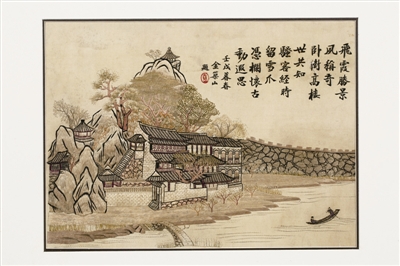 飛霞勝景
夙稱奇
卧 高
世共知
騷客經時
留雪爪
憑欄懷古
動遐思
壬戌暮春
金葉山
題